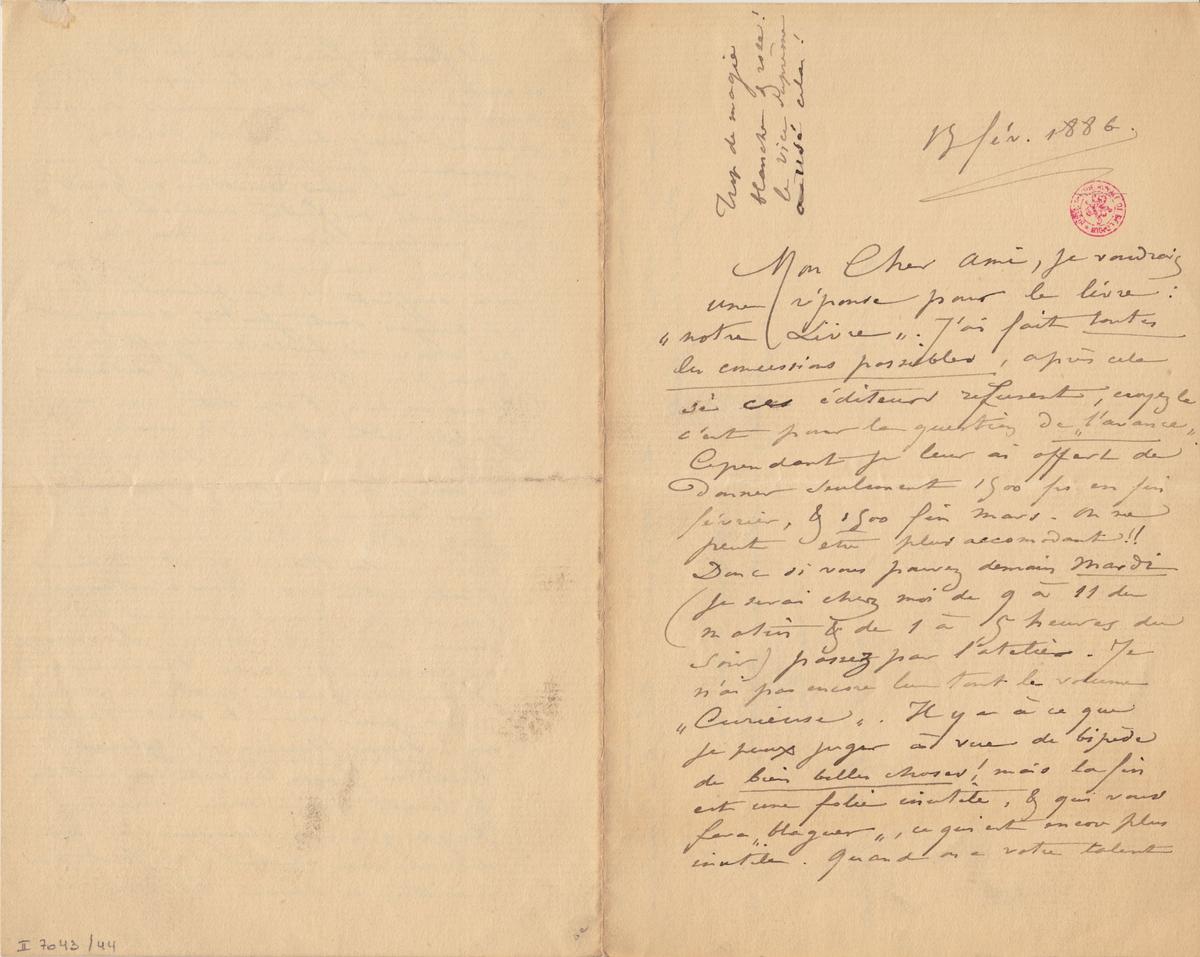 Trop de magie
blanche & rose!
le vice suprême
a usé cela!
15 fév. 1886.
Mon Cher Ami, je voudrais
une réponse pour le livre:
"notre Livre". J'ai fait toutes
les concessions possibles, après cela
si ces éditeurs refusent, croyez le
c'est pour la question de "l'avance"
Cependant je leur ai offert de
donner seulement 1500 frs en fin
février, & 1500 fin mars. On ne
peut etre plus accomodant!!
Donc si vous pouvez demain Mardi
(je serai chez moi de 9 à 11 du
matin & de 1 à 5 heures du
soir) passez par l'atelier. Je
n'ai pas encore lu tout le volume
"Curieuse". Il y a à ce que
je peux juger à vue de bipède
de bien belles choses! mais la fin
est une folie inutile, & qui vous
fera "blaguer", ce qui est encor plus
inutile. Quand on a votre talent
II 7043/44